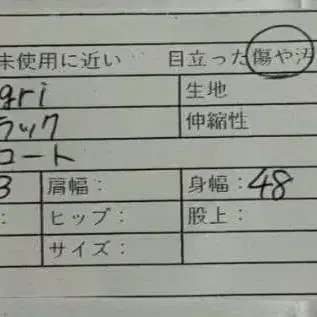 未使用に近い 目立った傷や汚
gri 生地
ラック 伸縮性
コート
3 肩幅： 身幅：48
： ヒップ： 股上：
サイズ：